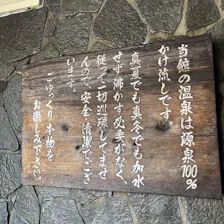 当館の温泉は源泉100%
かけ流しです。
真夏でも真冬でも加水
せず沸かす必要がなく、
従って一切循環してませ
んので安全・清潔でござ
います。
ごゆっくり本物を
お楽しみ下さい。